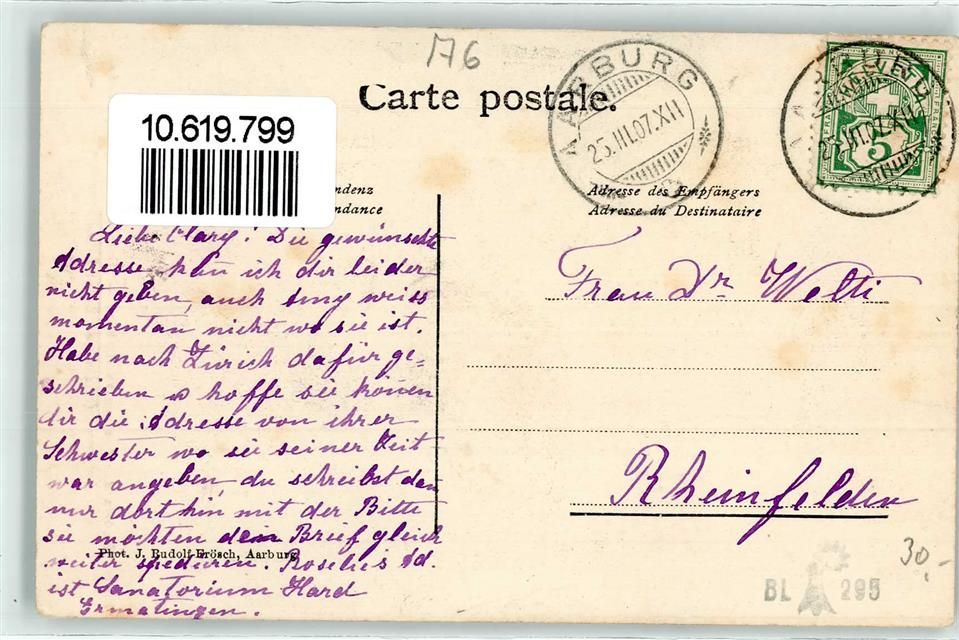 176
Carte postale.
10.619.799
AARBURG
25.III.07.XII
5
ndenz
ndance
Adresse des Empfängers
Adresse du Destinataire
Liebe Clary! Die gewünschte
Adresse kan ich dir leider
nicht geben, auch weiss
momentan nicht wo sie ist.
Habe nach Zürich dafür ge-
schrieben & hoffe sie könen
dir die Adresse von ihrer
Schwester wo sie seiner Zeit
war angeben, du schreibst dan
nur dorthin mit der Bitte
sie möhten dein Brief gleich
weiter spedieren. Roselies Ad.
ist Sanatorium Hard
Ermatingen.
Phot. J. Rudolf-Frösch, Aarburg
Frau Dr. Welti
Rheinfelden
30,-
BL 295